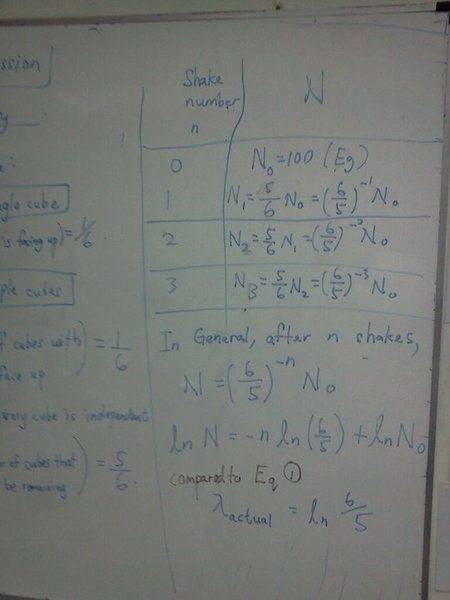 ssion
y
:
gle cube
is facing up) = 1/6
ple cubes
f cubes with) = 1/6
face up
very cube is independent
r of cubes that) = 5/6
be remaining
Shake number n | N
0 | N₀ = 100 (Eg)
1 | N₁ = 5/6 N₀ = (6/5)⁻¹ N₀
2 | N₂ = 5/6 N₁ = (6/5)⁻² N₀
3 | N₃ = 5/6 N₂ = (6/5)⁻³ N₀
In General, after n shakes,
N = (6/5)⁻ⁿ N₀
ln N = -n ln(6/5) + ln N₀
compared to Eq ①
λactual = ln 6/5